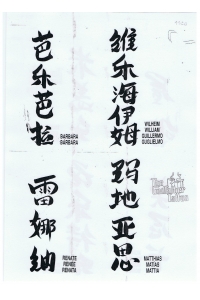 芭乐芭拉
BARBARA
BARBARA
维乐海伊姆
WILHEIM
WILLIAM
GUILLERMO
GUGLIELMO
雷娜纳
RENATE
RENÉE
RENATA
玛地亚思
MATTHIAS
MATIAS
MATTIA
The